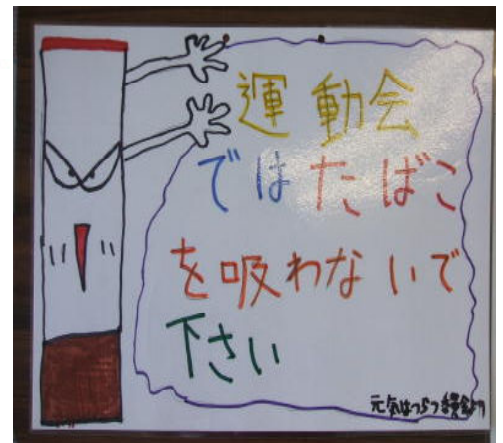 運動会
ではたばこ
を吸わないで
下さい
元気はつらつ委員会より